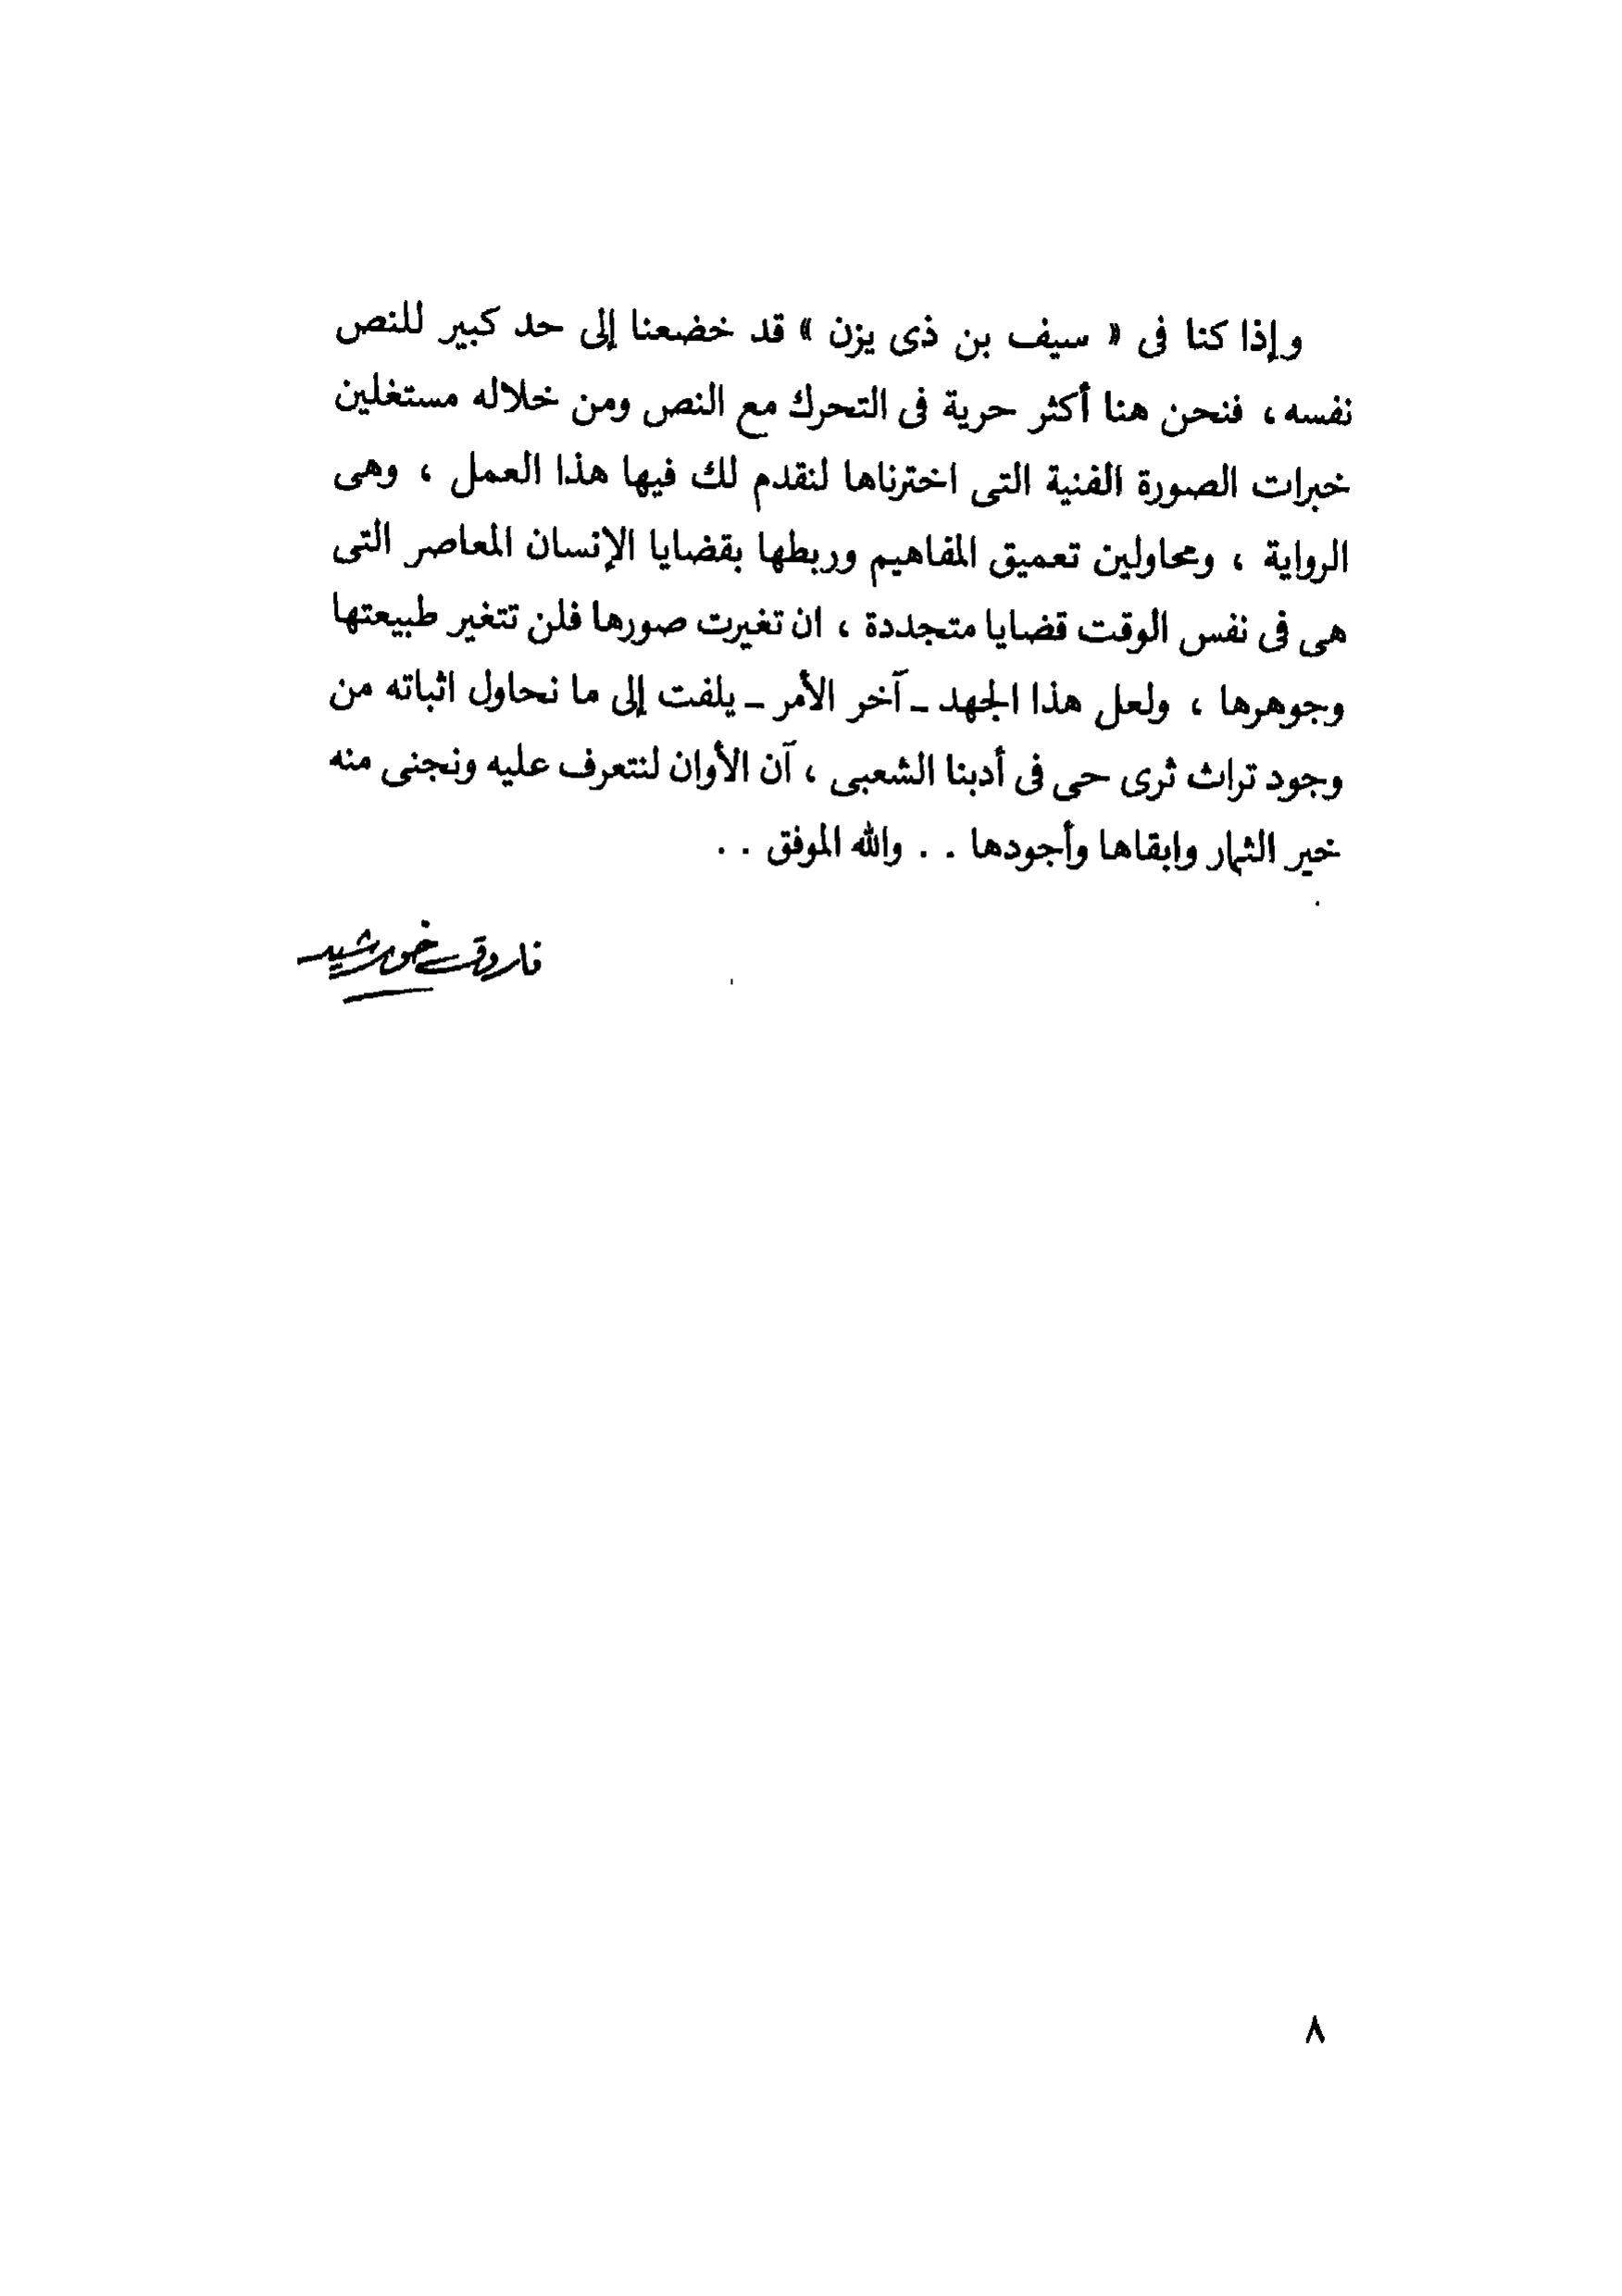 وإذا كنا فى « سيف بن ذى يزن » قد خضعنا إلى حد كبير للنص
نفسه ، فنحن هنا أكثر حرية فى التحرك مع النص ومن خلاله مستغلين
خبرات الصورة الفنية التى اخترناها لنقدم لك فيها هذا العمل ، وهى
الرواية ، ومحاولين تعميق المفاهيم وربطها بقضايا الإنسان المعاصر التى
هى فى نفس الوقت قضايا متجددة ، ان تغيرت صورها فلن تتغير طبيعتها
وجوهرها ، ولعل هذا الجهد ـ آخر الأمر ـ يلفت إلى ما نحاول اثباته من
وجود تراث ثرى حى فى أدبنا الشعبى ، آن الأوان لنتعرف عليه ونجنى منه
خير الثمار وابقاها وأجودها . . والله الموفق . .
فاروق خورشيد
٨